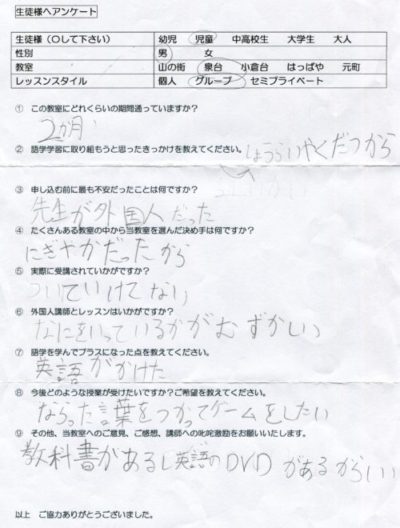 生徒様へアンケート
生徒様（○して下さい） 幼児 児童 中高校生 大学生 大人
性別 男 女
教室 山の街 泉台 小倉台 はっぱや 元町
レッスンスタイル 個人 グループ セミプライベート
① この教室にどれくらいの期間通っていますか？
2か月
② 語学学習に取り組もうと思ったきっかけを教えてください。
しょうらいやくだつから
③ 申し込む前に最も不安だったことは何ですか？
先生が外国人だった
④ たくさんある教室の中から当教室を選んだ決め手は何ですか？
にぎやかだったから
⑤ 実際に受講されていかがですか？
ついていけてない
⑥ 外国人講師とレッスンはいかがですか？
なにをいっているかがむずかしい
⑦ 語学を学んでプラスになった点を教えてください。
英語がかけた
⑧ 今後どのような授業が受けたいですか？ご希望を教えてください。
ならった言葉をつかってゲームをしたい
⑨ その他、当教室へのご意見、ご感想、講師への叱咤激励をお願いいたします。
教科書があるし英語のDVDがあるからいい
以上 ご協力ありがとうございました。